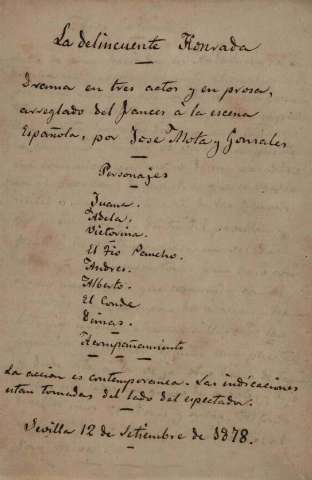 La delincuente Honrada
Drama en tres actos y en prosa,
arreglado del frances á la escena
Española, por José Mota y Gonzales
Personajes
Juana.
Adela.
Victorina.
El Tio Pancho.
Andres.
Alberto.
El Conde
Dimas.
Acompañamiento
La accion es contemporanea. Las indicaciones
estan tomadas del lado del espectador.
Sevilla 12 de Setiembre de 1878.